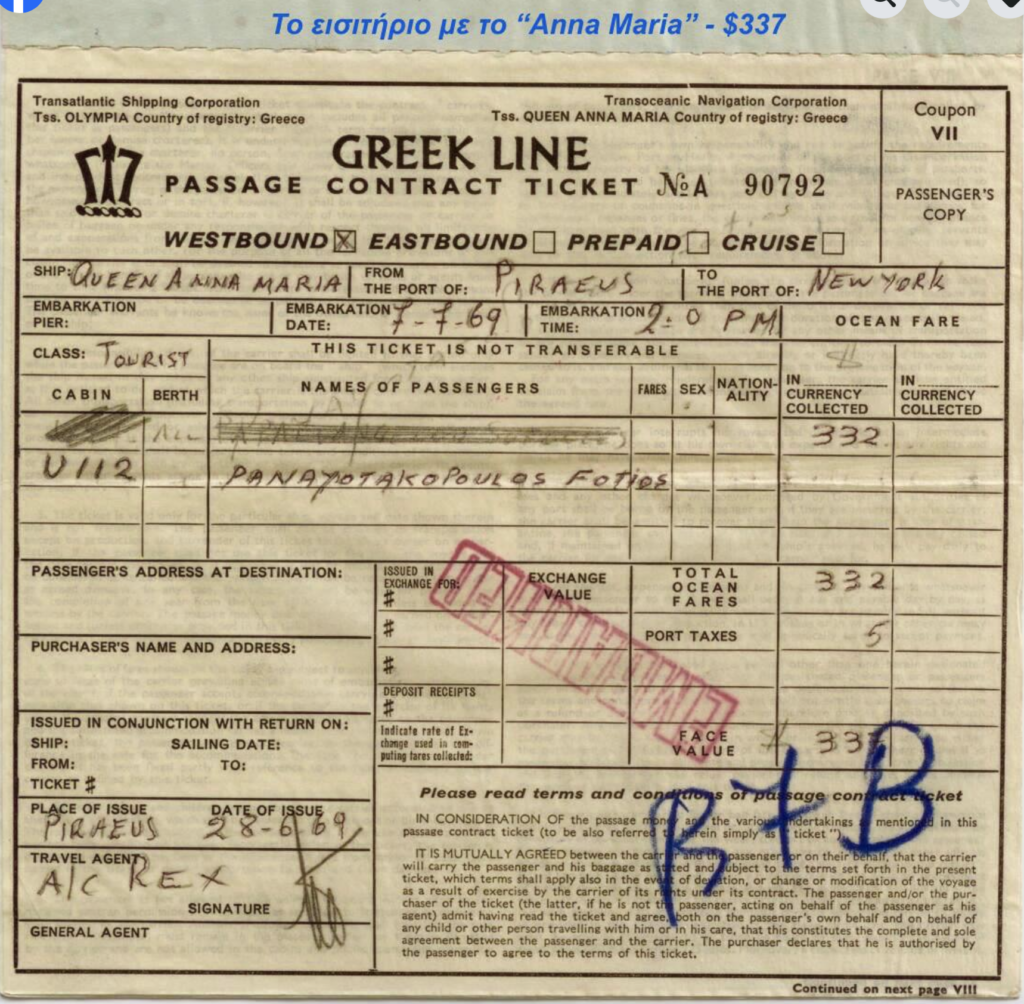 Το εισιτήριο με το “Anna Maria” - $337
Transatlantic Shipping Corporation
Tss. OLYMPIA Country of registry: Greece
Transoceanic Navigation Corporation
Tss. QUEEN ANNA MARIA Country of registry: Greece
Coupon
VII
GREEK LINE
PASSAGE CONTRACT TICKET №A 90792
PASSENGER'S
COPY
WESTBOUND EASTBOUND PREPAID CRUISE
SHIP: QUEEN ANNA MARIA FROM THE PORT OF: PIRAEUS TO THE PORT OF: NEW YORK
EMBARKATION PIER: EMBARKATION DATE: 7-7-69 EMBARKATION TIME: 2:0 PM OCEAN FARE
CLASS: TOURIST THIS TICKET IS NOT TRANSFERABLE $
CABIN BERTH NAMES OF PASSENGERS FARES SEX NATION-ALITY IN CURRENCY COLLECTED IN CURRENCY COLLECTED
ALL 332
U112 PANAYOTAKOPOULOS FOTIOS
PASSENGER'S ADDRESS AT DESTINATION:
ISSUED IN EXCHANGE FOR: EXCHANGE VALUE TOTAL OCEAN FARES 332
#
# PORT TAXES 5
PURCHASER'S NAME AND ADDRESS:
#
DEPOSIT RECEIPTS
#
EMBARKED
ISSUED IN CONJUNCTION WITH RETURN ON:
SHIP: SAILING DATE:
FROM: TO:
TICKET #
Indicate rate of Ex-
change used in com-
puting fares collected:
FACE VALUE $ 337
PLACE OF ISSUE DATE OF ISSUE
PIRAEUS 28-6/69
TRAVEL AGENT
A/C REX
SIGNATURE
GENERAL AGENT
B7B
Please read terms and conditions of passage contract ticket
IN CONSIDERATION OF the passage money and the various undertakings as mentioned in this
passage contract ticket (to be also referred to herein simply as "ticket").
IT IS MUTUALLY AGREED between the carrier and the passenger or on their behalf, that the carrier
will carry the passenger and his baggage as stated and subject to the terms set forth in the present
ticket, which terms shall apply also in the event of deviation, or change or modification of the voyage
as a result of exercise by the carrier of its rights under its contract. The passenger and/or the pur-
chaser of the ticket (the latter, if he is not the passenger, acting on behalf of the passenger as his
agent) admit having read the ticket and agree, both on the passenger's own behalf and on behalf of
any child or other person travelling with him or in his care, that this constitutes the complete and sole
agreement between the passenger and the carrier. The purchaser declares that he is authorised by
the passenger to agree to the terms of this ticket.
Continued on next page VIII